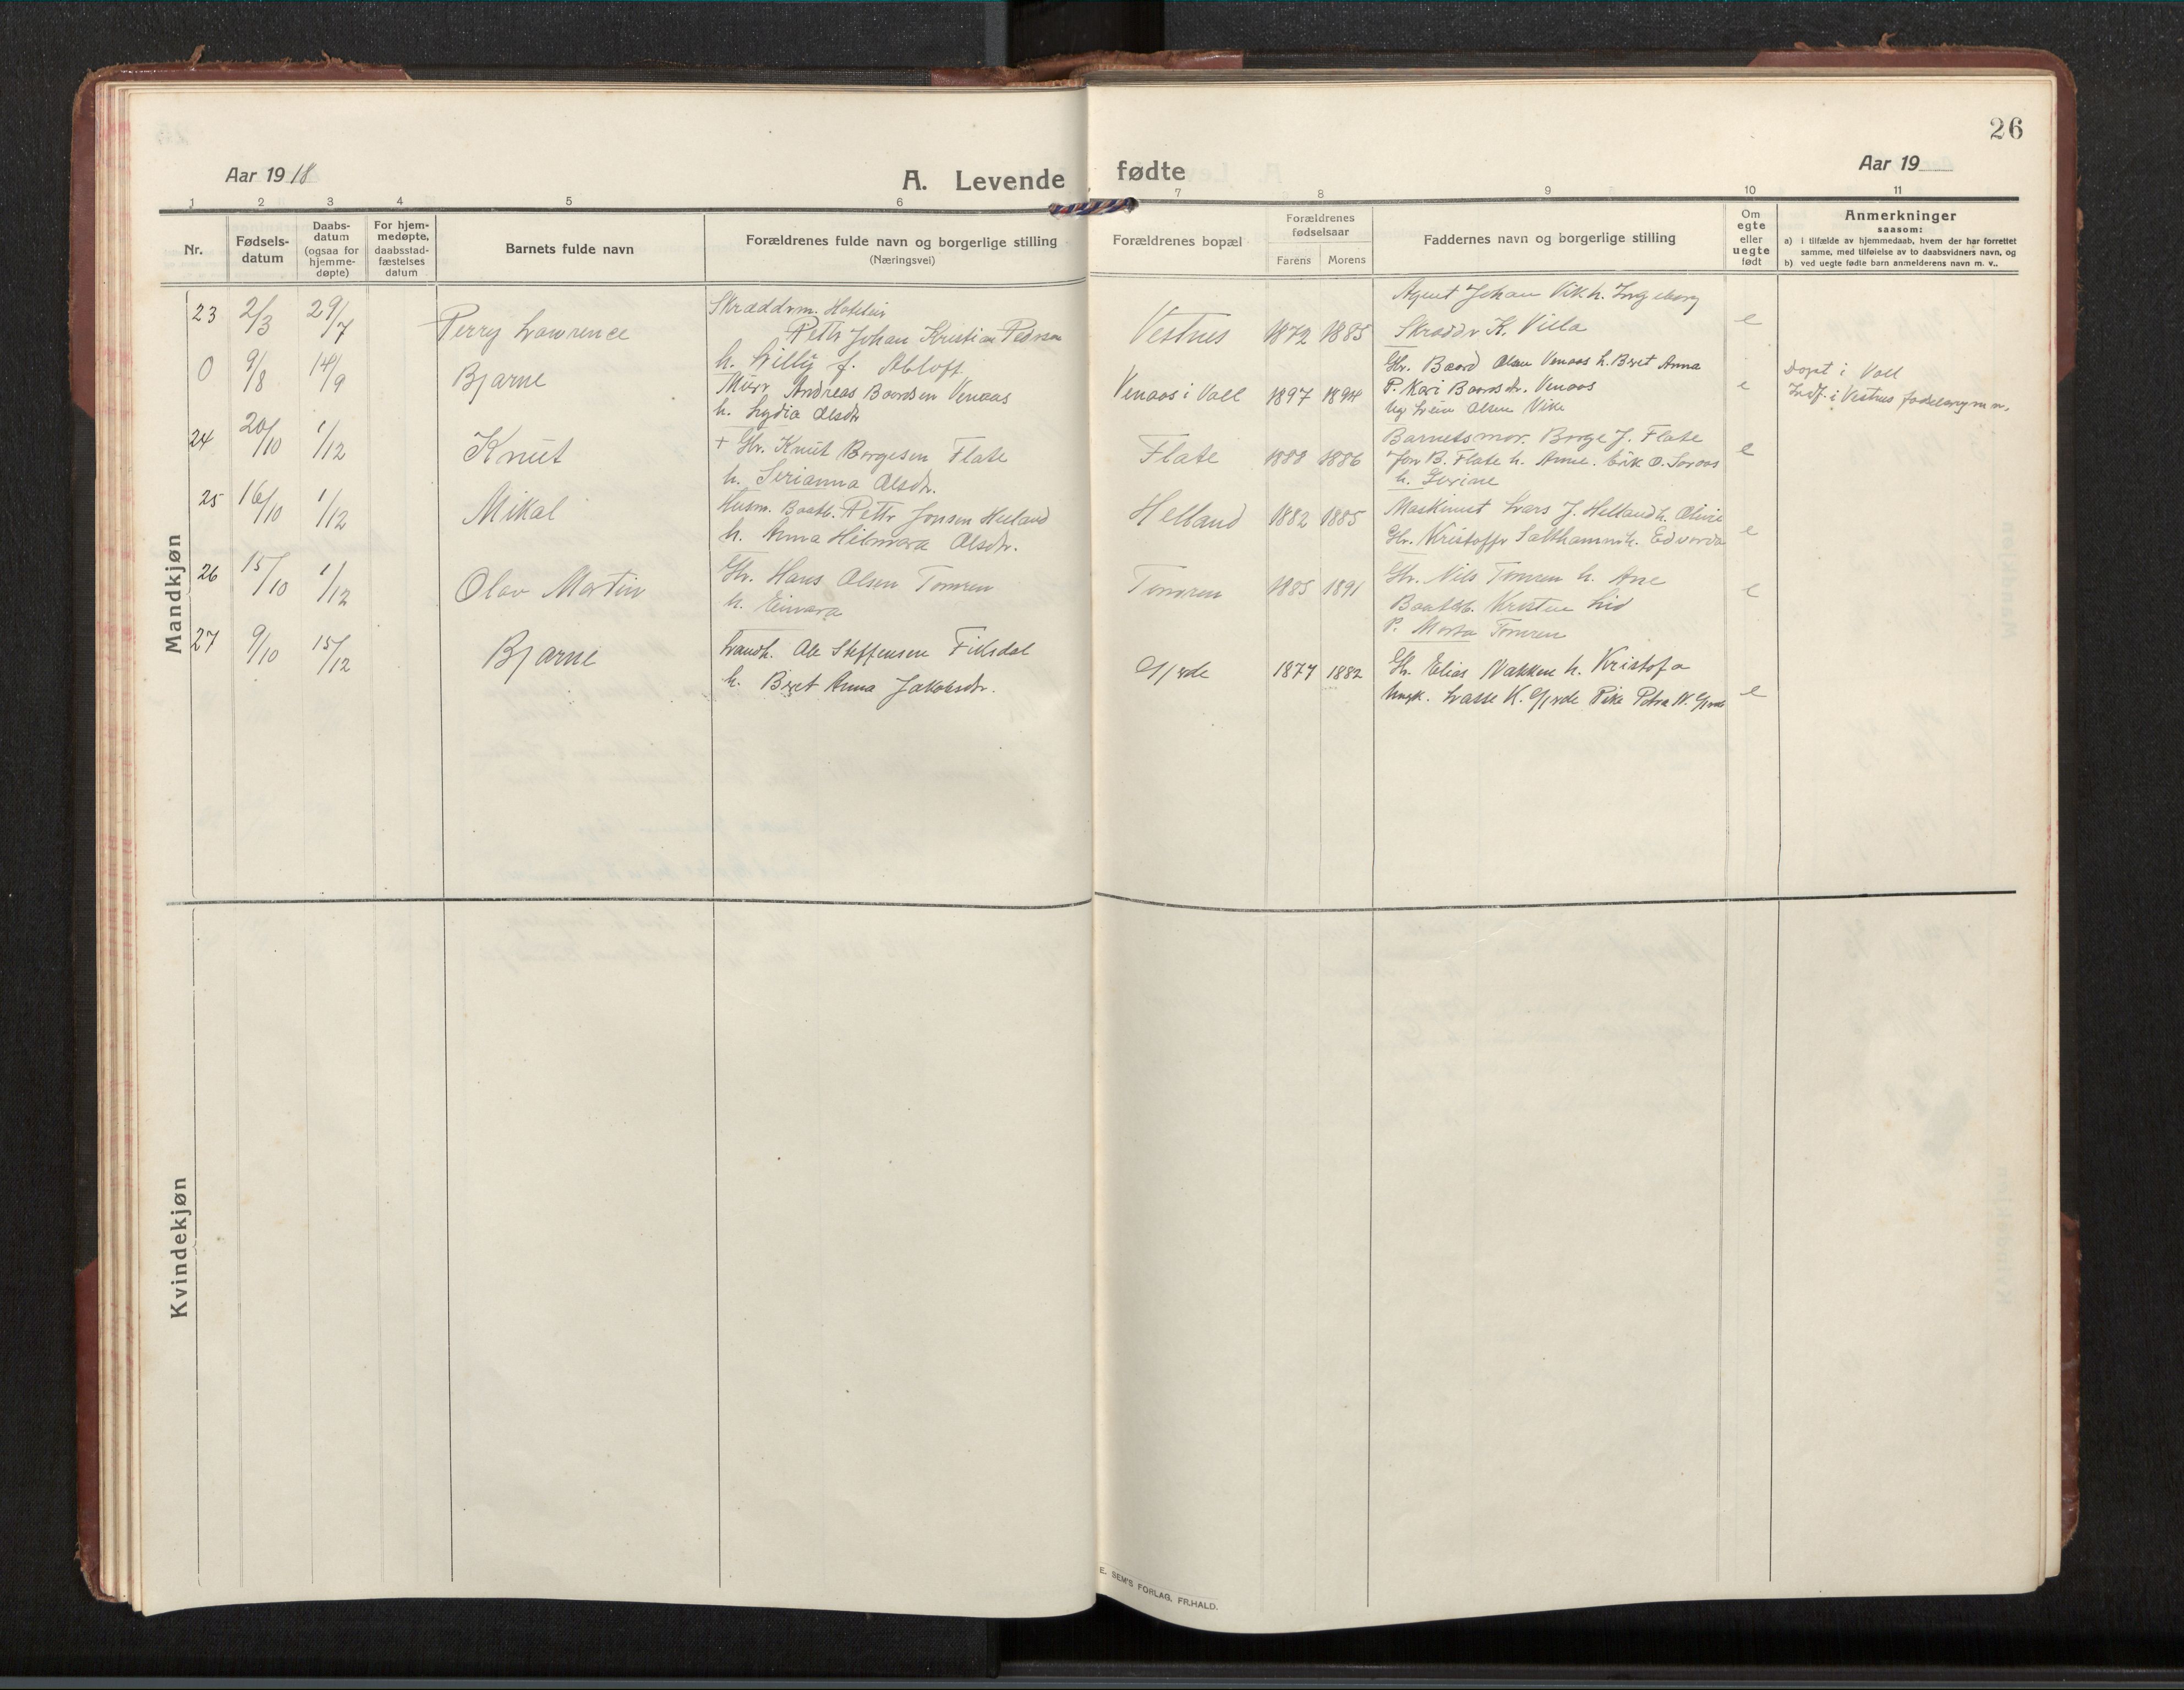 26
Aar 1918
A. Levende fødte
Aar 19
1 2 3 4 5 6 7 8 9 10 11
Nr.
Fødsels-
datum
Daabs-
datum
(ogsaa for
hjemme-
døpte)
For hjem-
medøpte,
daabsstad-
fæstelses
datum
Barnets fulde navn
Forældrenes fulde navn og borgerlige stilling
(Næringsvei)
Forældrenes bopæl
Forældrenes
fødselsaar
Farens Morens
Faddernes navn og borgerlige stilling
Om
egte
eller
uegte
født
Anmerkninger
saasom:
a) i tilfælde av hjemmedaab, hvem der har forrettet
samme, med tilføielse av to daabsvidners navn, og
b) ved uegte fødte barn anmelderens navn m. v..
Mandkjøn
23 2/3 29/7 Perry Lawrence
Skræddrm.
Pettr Johan Kristian Pedrsen
h. Willy f.
Vestnes 1872 1885
Agent Johan Vik h. Ingeborg
Skræddr K. Villa
e
0 9/8 14/9 Bjarne
Murr Andreas Baardsen Venaas
h. Lydia Olsdr
Venaas i Voll 1897 1894
Gbr. Baard Olsen Venaas h. Beret Anna
P. Kari Baardsdr. Venaas
Ug Olsen Vike
e
Døpt i Voll
Indf. i Vestnes
24 20/10 1/12 Knut
+ Gbr. Knut Børgesen Flate
h. Serianna Olsdr.
Flate 1888 1886
Barnets mor. Børge J. Flate
Jon B. Flate h. Anne. Erik O.
h.
e
25 16/10 1/12 Mikal
Husm. Baatb. Pettr Jonsen Helland
h. Anna Hilmara Olsdr.
Helland 1882 1885
Maskinist Lars J. Helland h. Oline
Gbr. Kristoffr Salthamm h. Edvarda
e
26 15/10 1/12 Olav Martin
Gbr. Hans Olsen Tomren
h. Einara
Tomren 1885 1891
Gbr. Nils Tomren h. Ane
Baatb. Kresten Lid
P. Marta Tomren
e
27 9/10 15/12 Bjarne
Landh. Ole Steffensen Fiksdal
h. Beret Anna Jakobsdr.
Gjerde 1877 1882
Gbr. Elias Nakken h. Kristofa
Ungk. Lasse K. Gjerde Pike Petra N. Gjerde
e
Kvindekjøn
E. SEM'S FORLAG, FR.HALD.